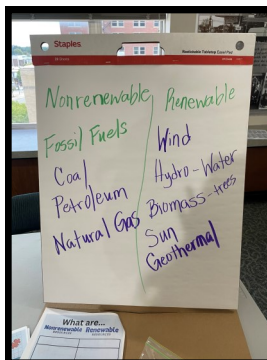 Staples
Nonrenewable
Fossil Fuels
Coal
Petroleum
Natural Gas
Renewable
Wind
Hydro-Water
Biomass-trees
Sun
Geothermal
What are...
Nonrenewable Renewable